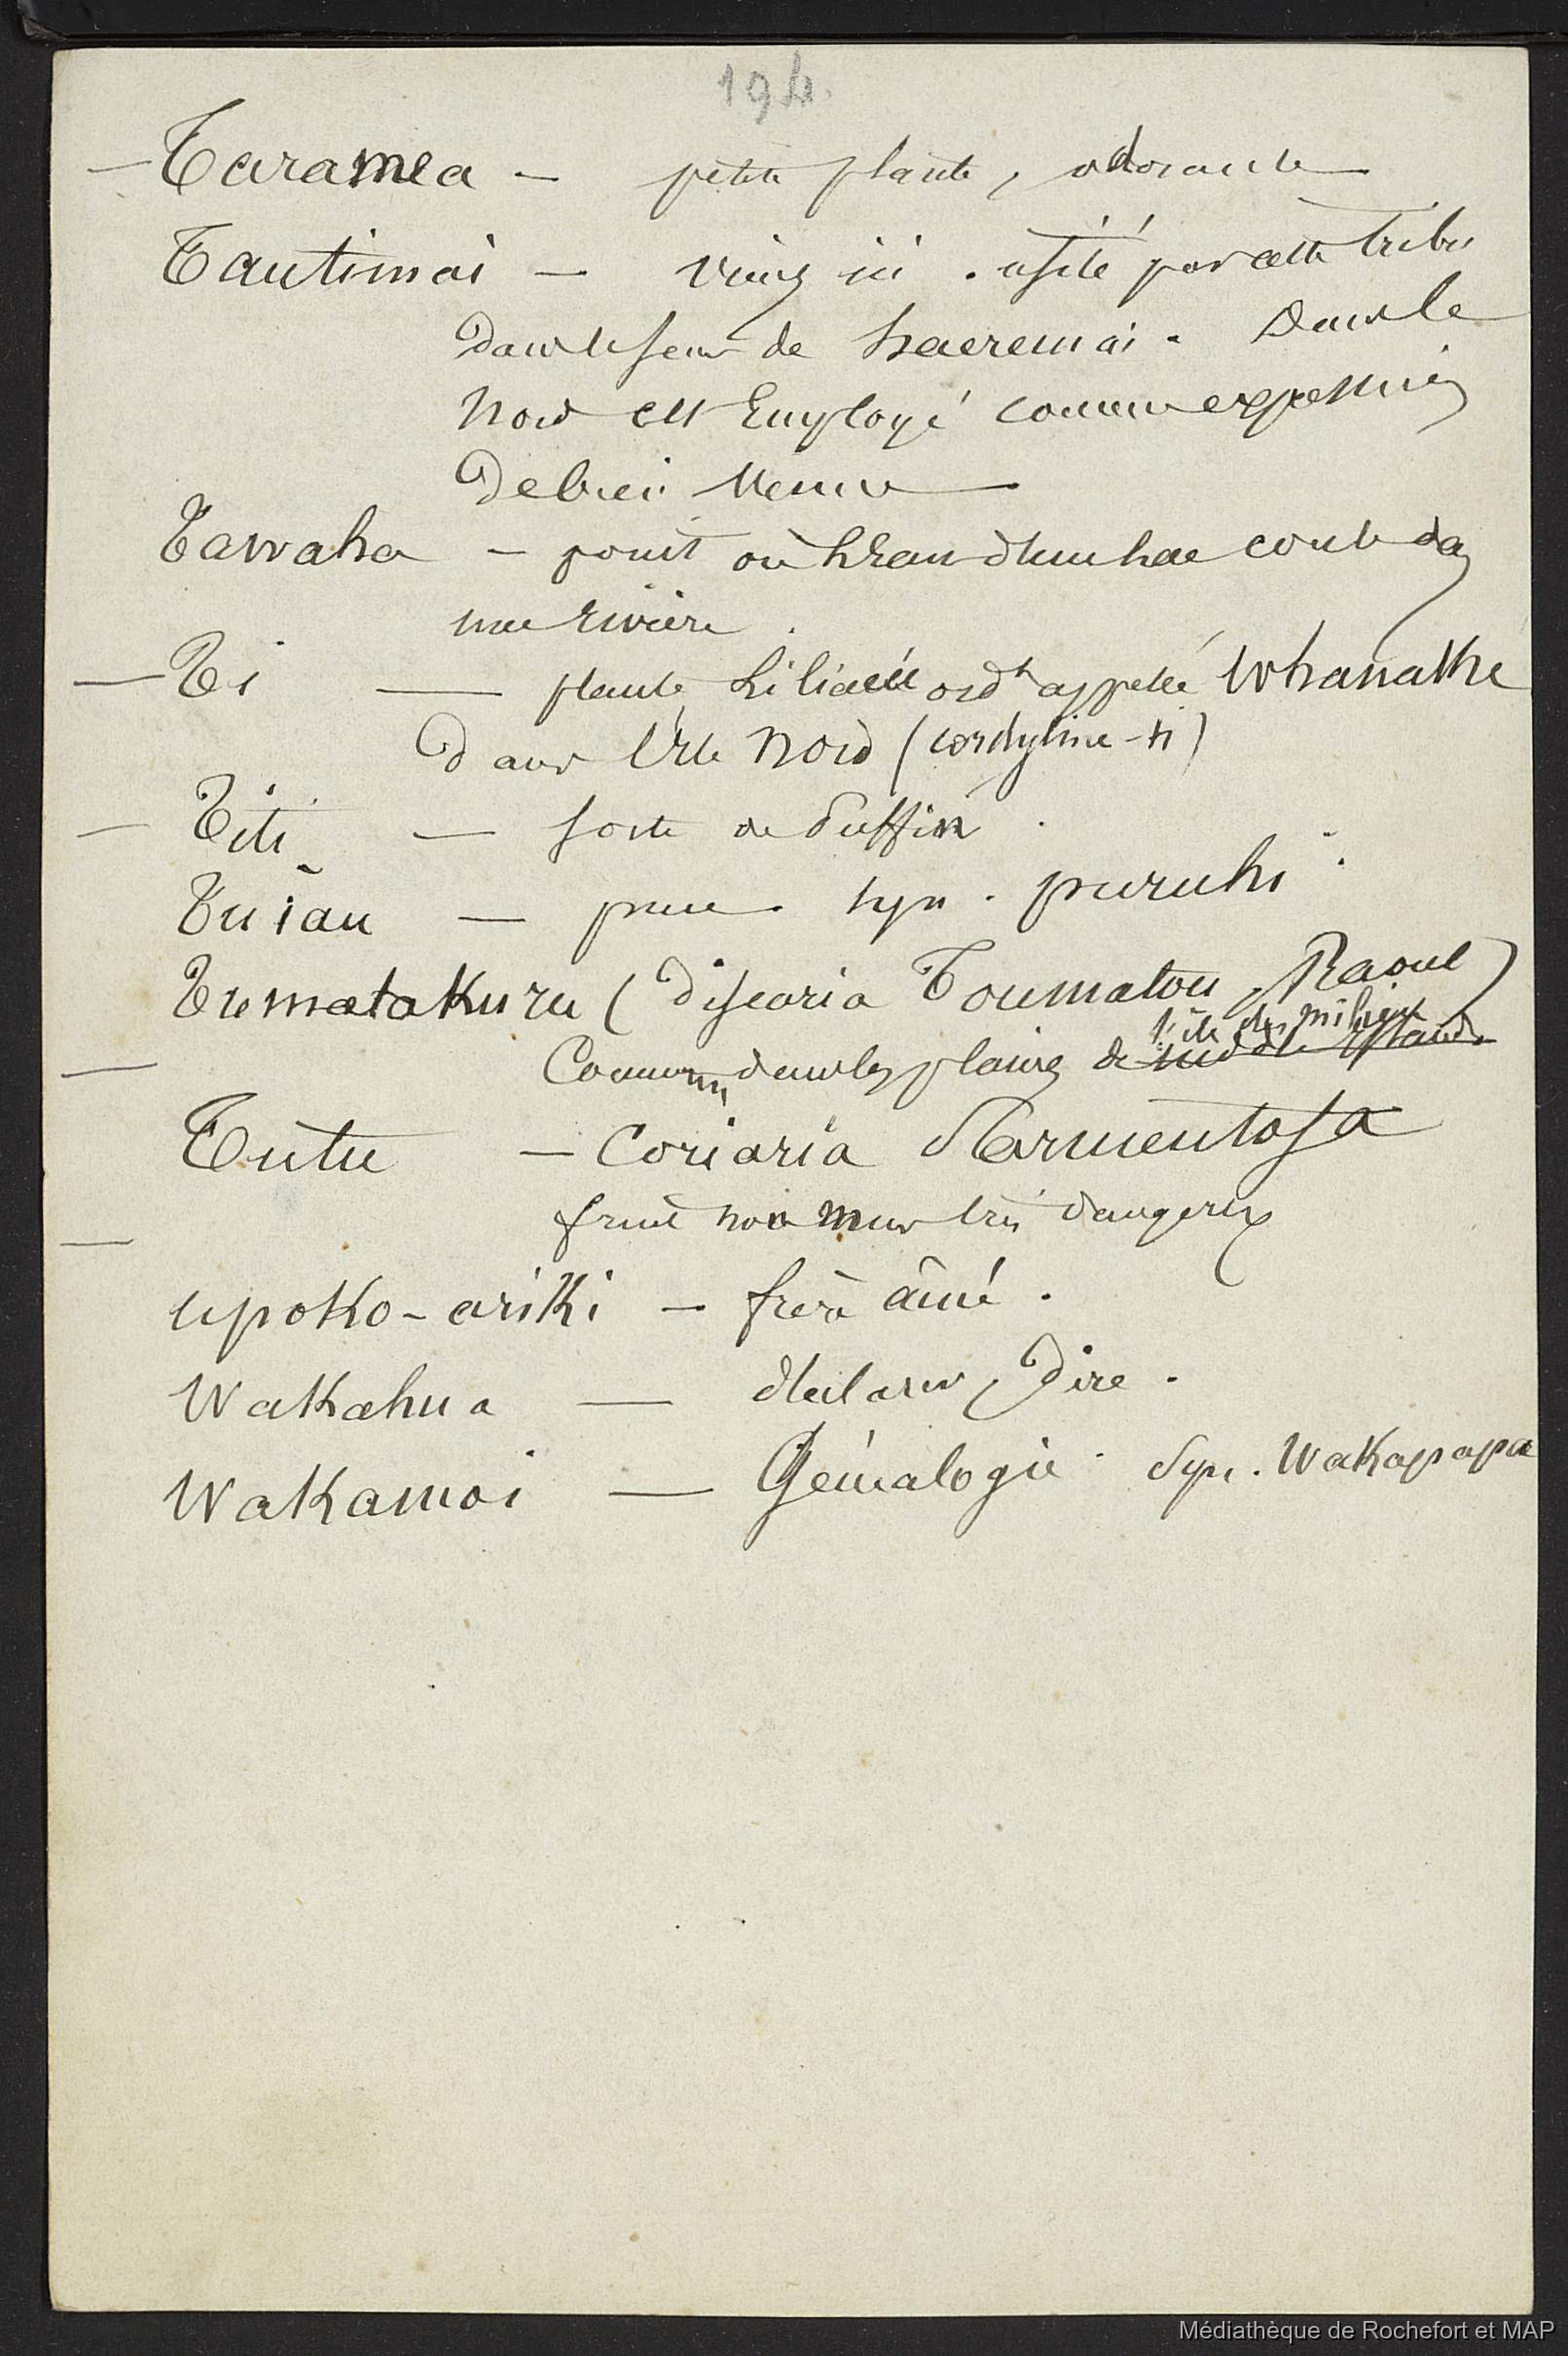 194.
— Taramea — petite plante, odorante —
Tautimai — viens ici. usité par cette tribu
dans le sens de haeremai. Dans le
Nord est Employé comme expression
de bien venue —
Tawaha — point où l'eau d'un lac coule dans
une rivière.
— Ti — plante Liliacée ordt appelée Whanake
Dans l'Ile Nord (cordyline-ti)
— Titi — sorte de Puffin.
Tuiau — puce. syn. puruhi.
Tumatakuru (Discaria Toumatou, Raoul)
l'île du milieu
— Commun dans les plaines de middle Island.
Tutu — Coriaria Sarmentosa
fruit non mur très dangereux
—
upoko-ariki — frère aîné.
Wakahua — declarer, Dire.
Wakamoi — Généalogie. Syn. Wakapapa
Médiathèque de Rochefort et MAP